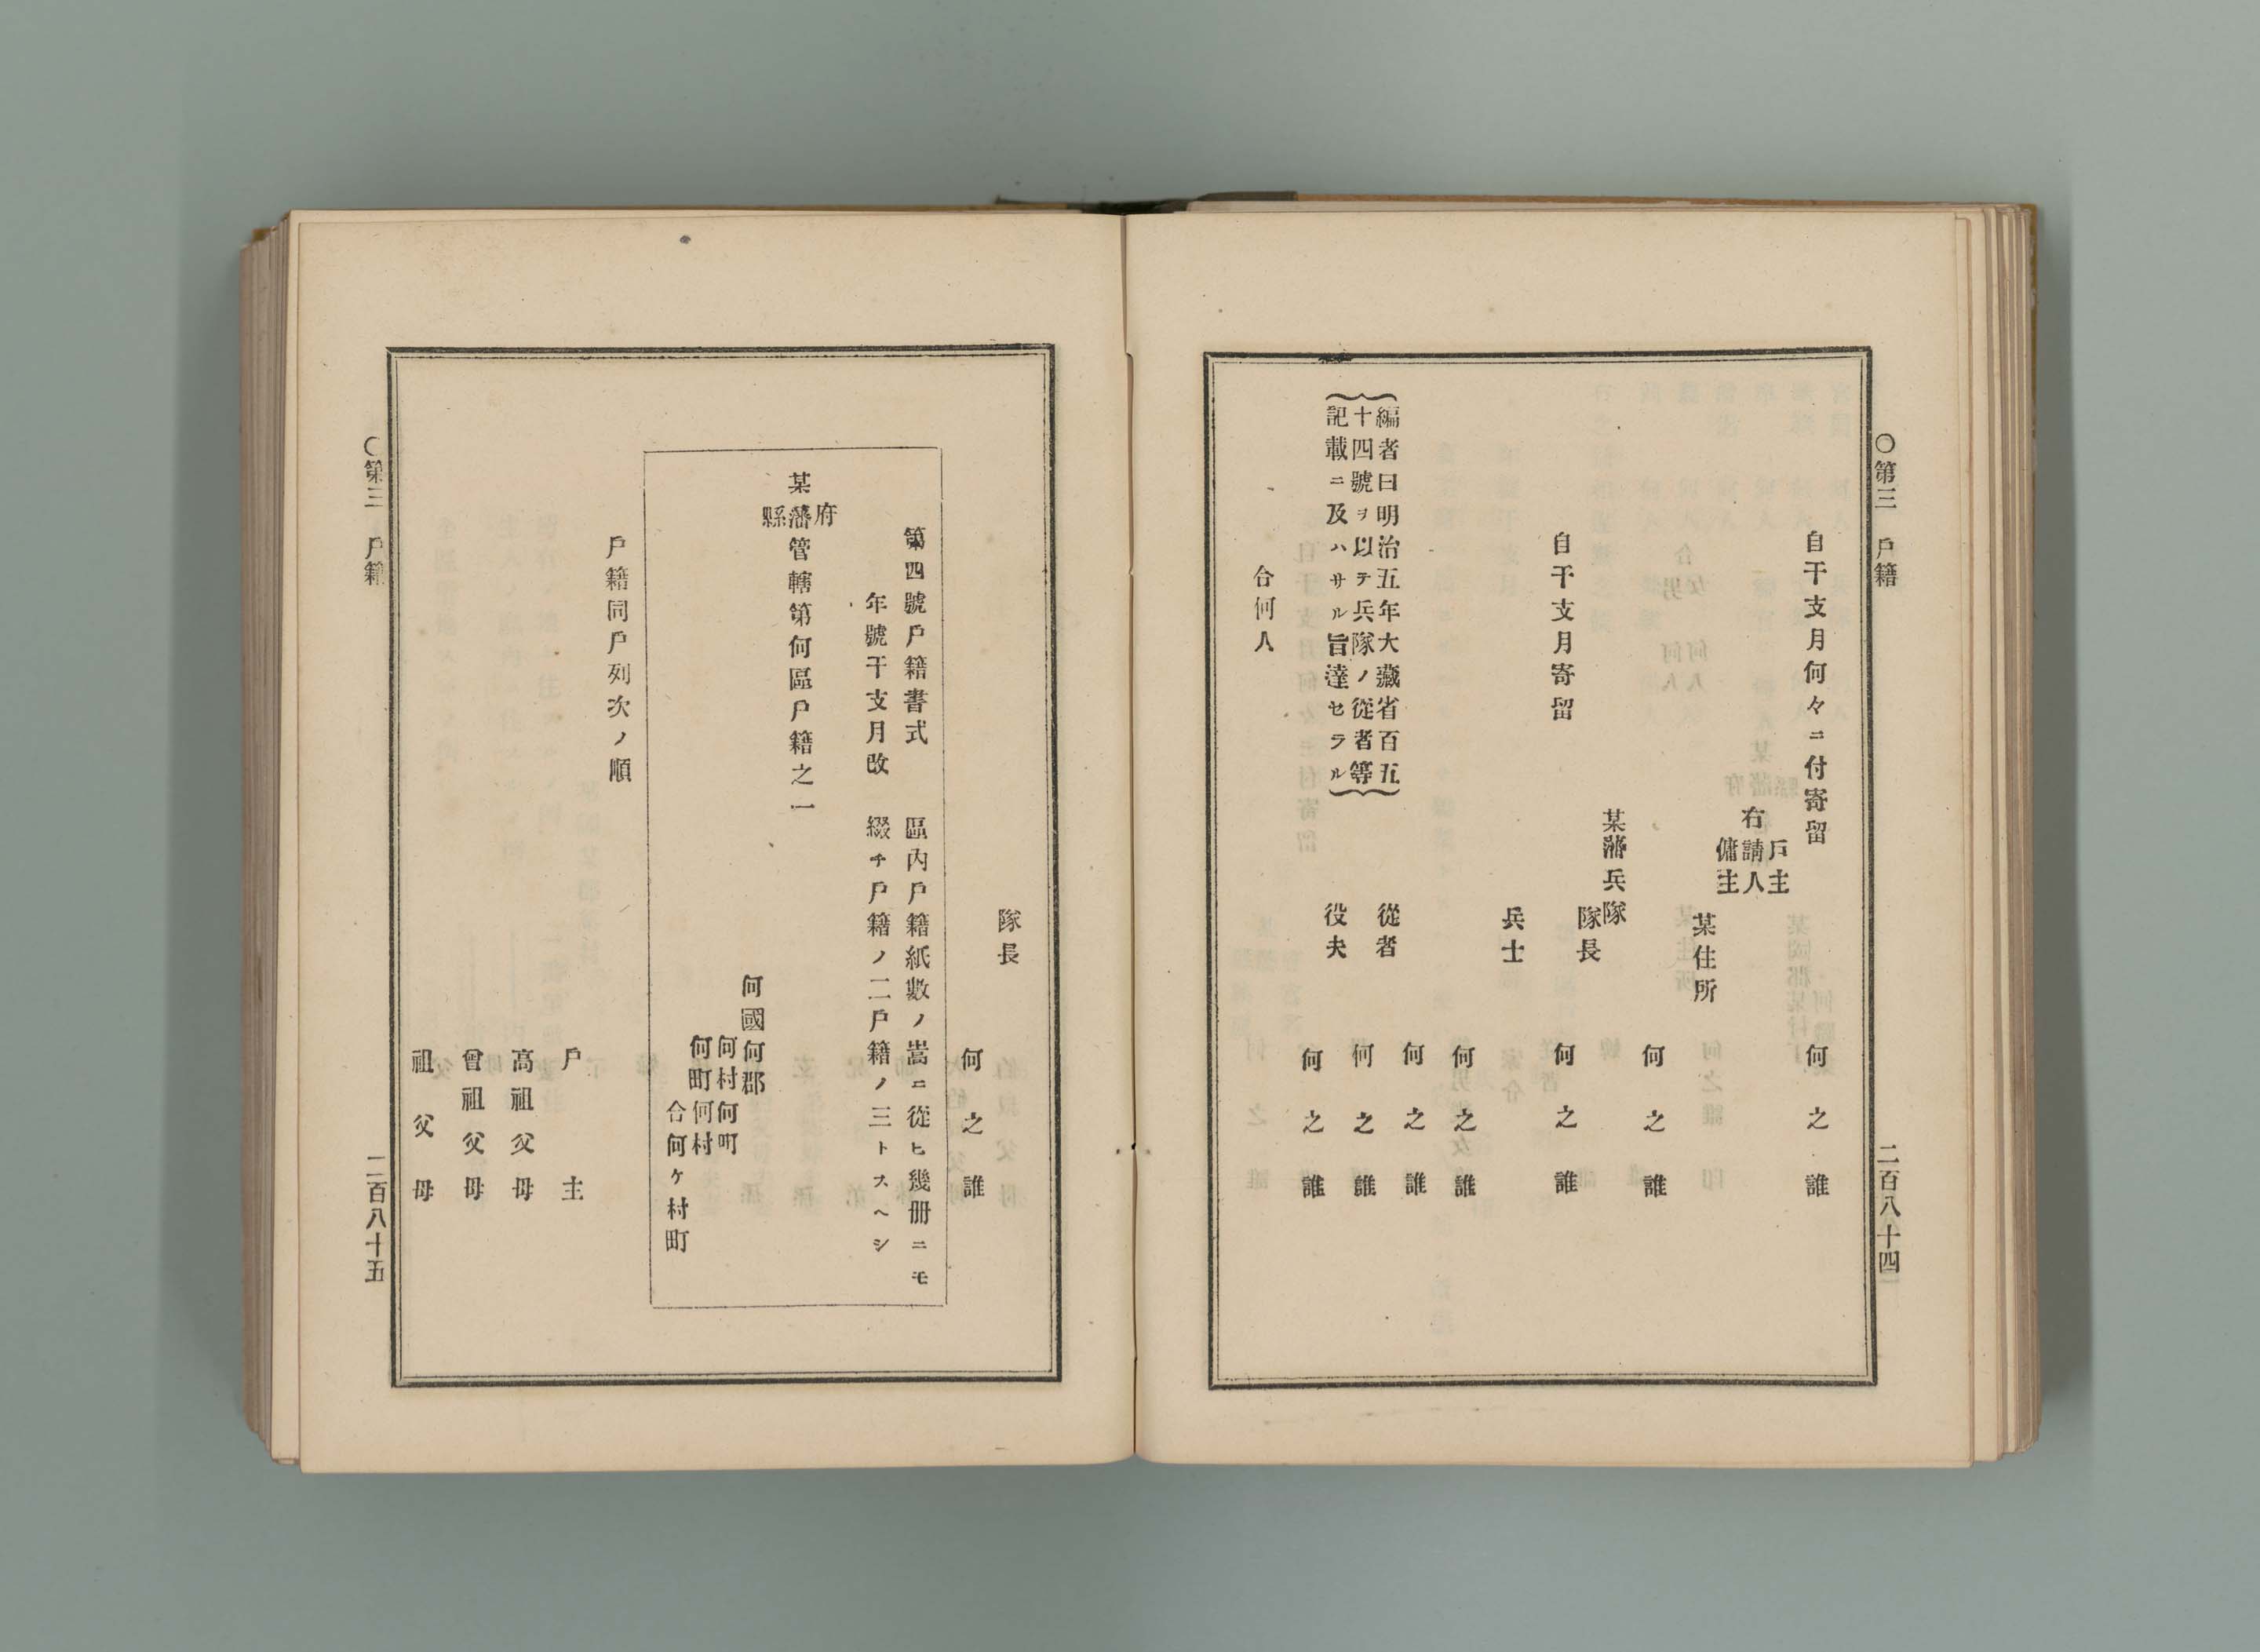 〇第三　戶籍
二百八十四
自干支月何々ニ付寄留
何之誰
戶主
右請人
傭主
某住所
何之誰
某藩兵隊
隊長
自干支月寄留
何之誰
兵士
何之誰
何之誰
從者
何之誰
役夫
何之誰
編者曰明治五年大藏省百五
十四號ヲ以テ兵隊ノ從者等
記載ニ及ハサル旨達セラル
合何人
隊長
何之誰
第四號戶籍書式
區內戶籍紙數ノ嵩ニ從ヒ幾冊ニモ
年號干支月改
綴チ戶籍ノ二戶籍ノ三トスヘシ
府
某藩管轄第何區戶籍之一
縣
何國何郡
何村何町
何町何村
合何ケ村町
戶籍同戶列次ノ順
戶主
高祖父母
曾祖父母
祖父母
〇第三　戶籍
二百八十五